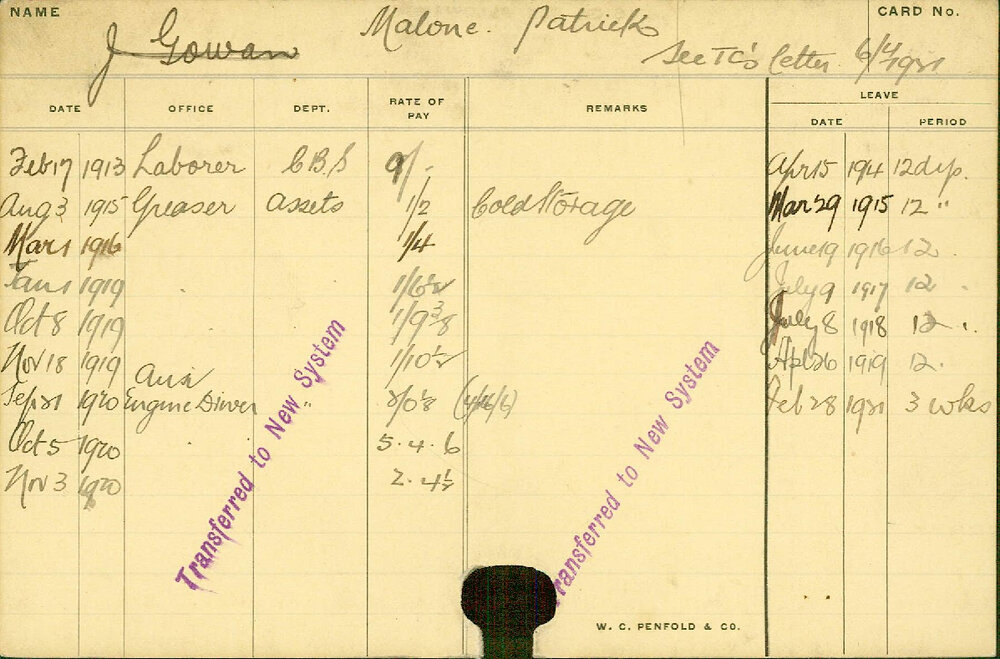 NAME Malone. Patrick CARD No.
J Gowan See TC's letter 6/4/1921
DATE OFFICE DEPT. RATE OF PAY REMARKS LEAVE
DATE PERIOD
Feb 17 1913 Laborer C.B.S 9/- Apr 15 1914 12 dys.
Aug 3 1915 Greaser Assets 1/2 Cold Storage Mar 29 1915 12 "
Mar 1 1916 1/4 June 19 1916 12
Jan 1 1919 July 9 1917 12
Oct 8 1919 1/9 3/8 July 8 1918 12
Nov 18 1919 1/10½ Apl 26 1919 12
Sep 21 1920 Engine Driver " Feb 28 1921 3 wks
Oct 5 1920 5.4.6
Nov 3 1920 2.4½
Transferred to New System
Transferred to New System
W. C. PENFOLD & CO.